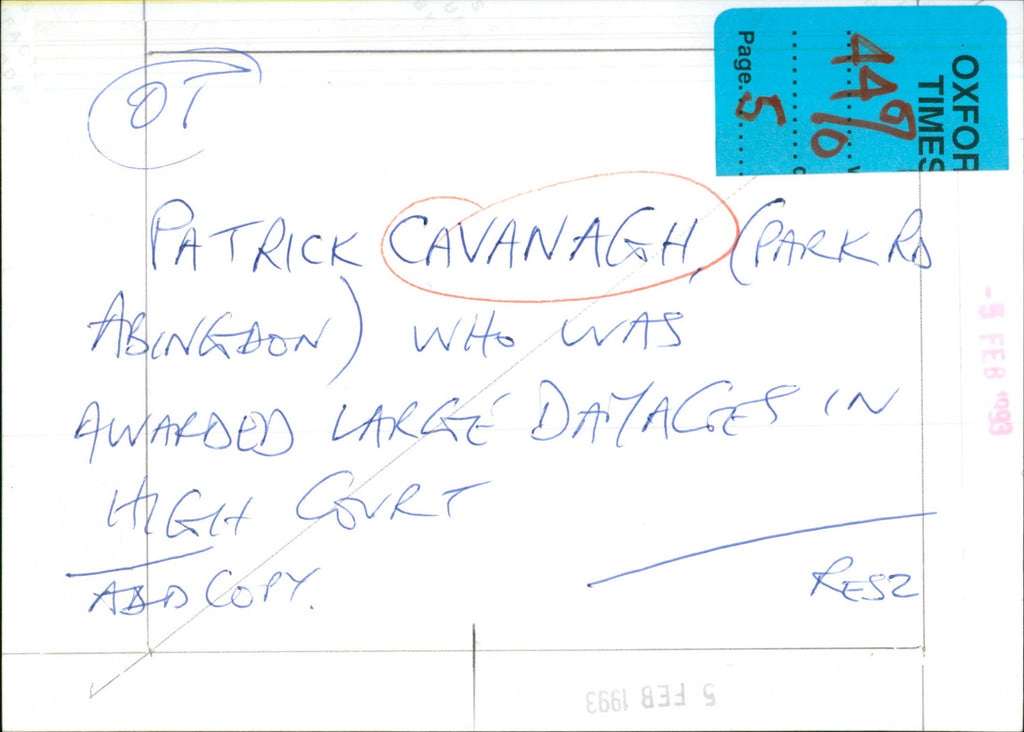 OT
OXFOR
TIMES
44%
Page 5
PATRICK CAVANAGH, (PARK RD
ABINGDON) WHO WAS
AWARDED LARGE DAMAGES IN
HIGH COURT
ABD COPY.
RESZ
-5 FEB 1993
5 FEB 1993